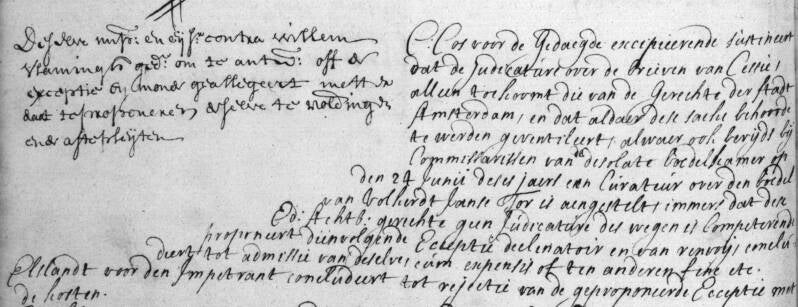 Deselve imp:r en eyss:r contra willem
vlamingh ged:e om te antw: off de
exceptie bij monde geallegeert met
daat te proponeren deselve te voldingen
ende aftepleijten
C: Cos voor de gedaegde excipieerende sustineert
dat de judicature over de brieven van Cessie,
alleen toekoomt die van de Gerechte der stadt
Amsterdam, en dat aldaer dese saeke behoorde
te werden geventileert, alwaer ook bereijds bij
Commissarissen van de desolate boedelkamer op
den 24 Junij deses jaers een Curateur over den boedel
van Volkerdt Janse Tor is aengestelt; immers dat dese
Ed: Achtb: gerechte geen Judicature des wegen is Competerende
proponeert dienvolgende Exceptie declinatoir en van renvoy, conclu-
deert tot admissie van deselve, cum expensis of ten anderen fine etc.
Elslandt voor den Impetrant concludeert tot rejectie van de geproponeerde Exceptie met
de kosten.